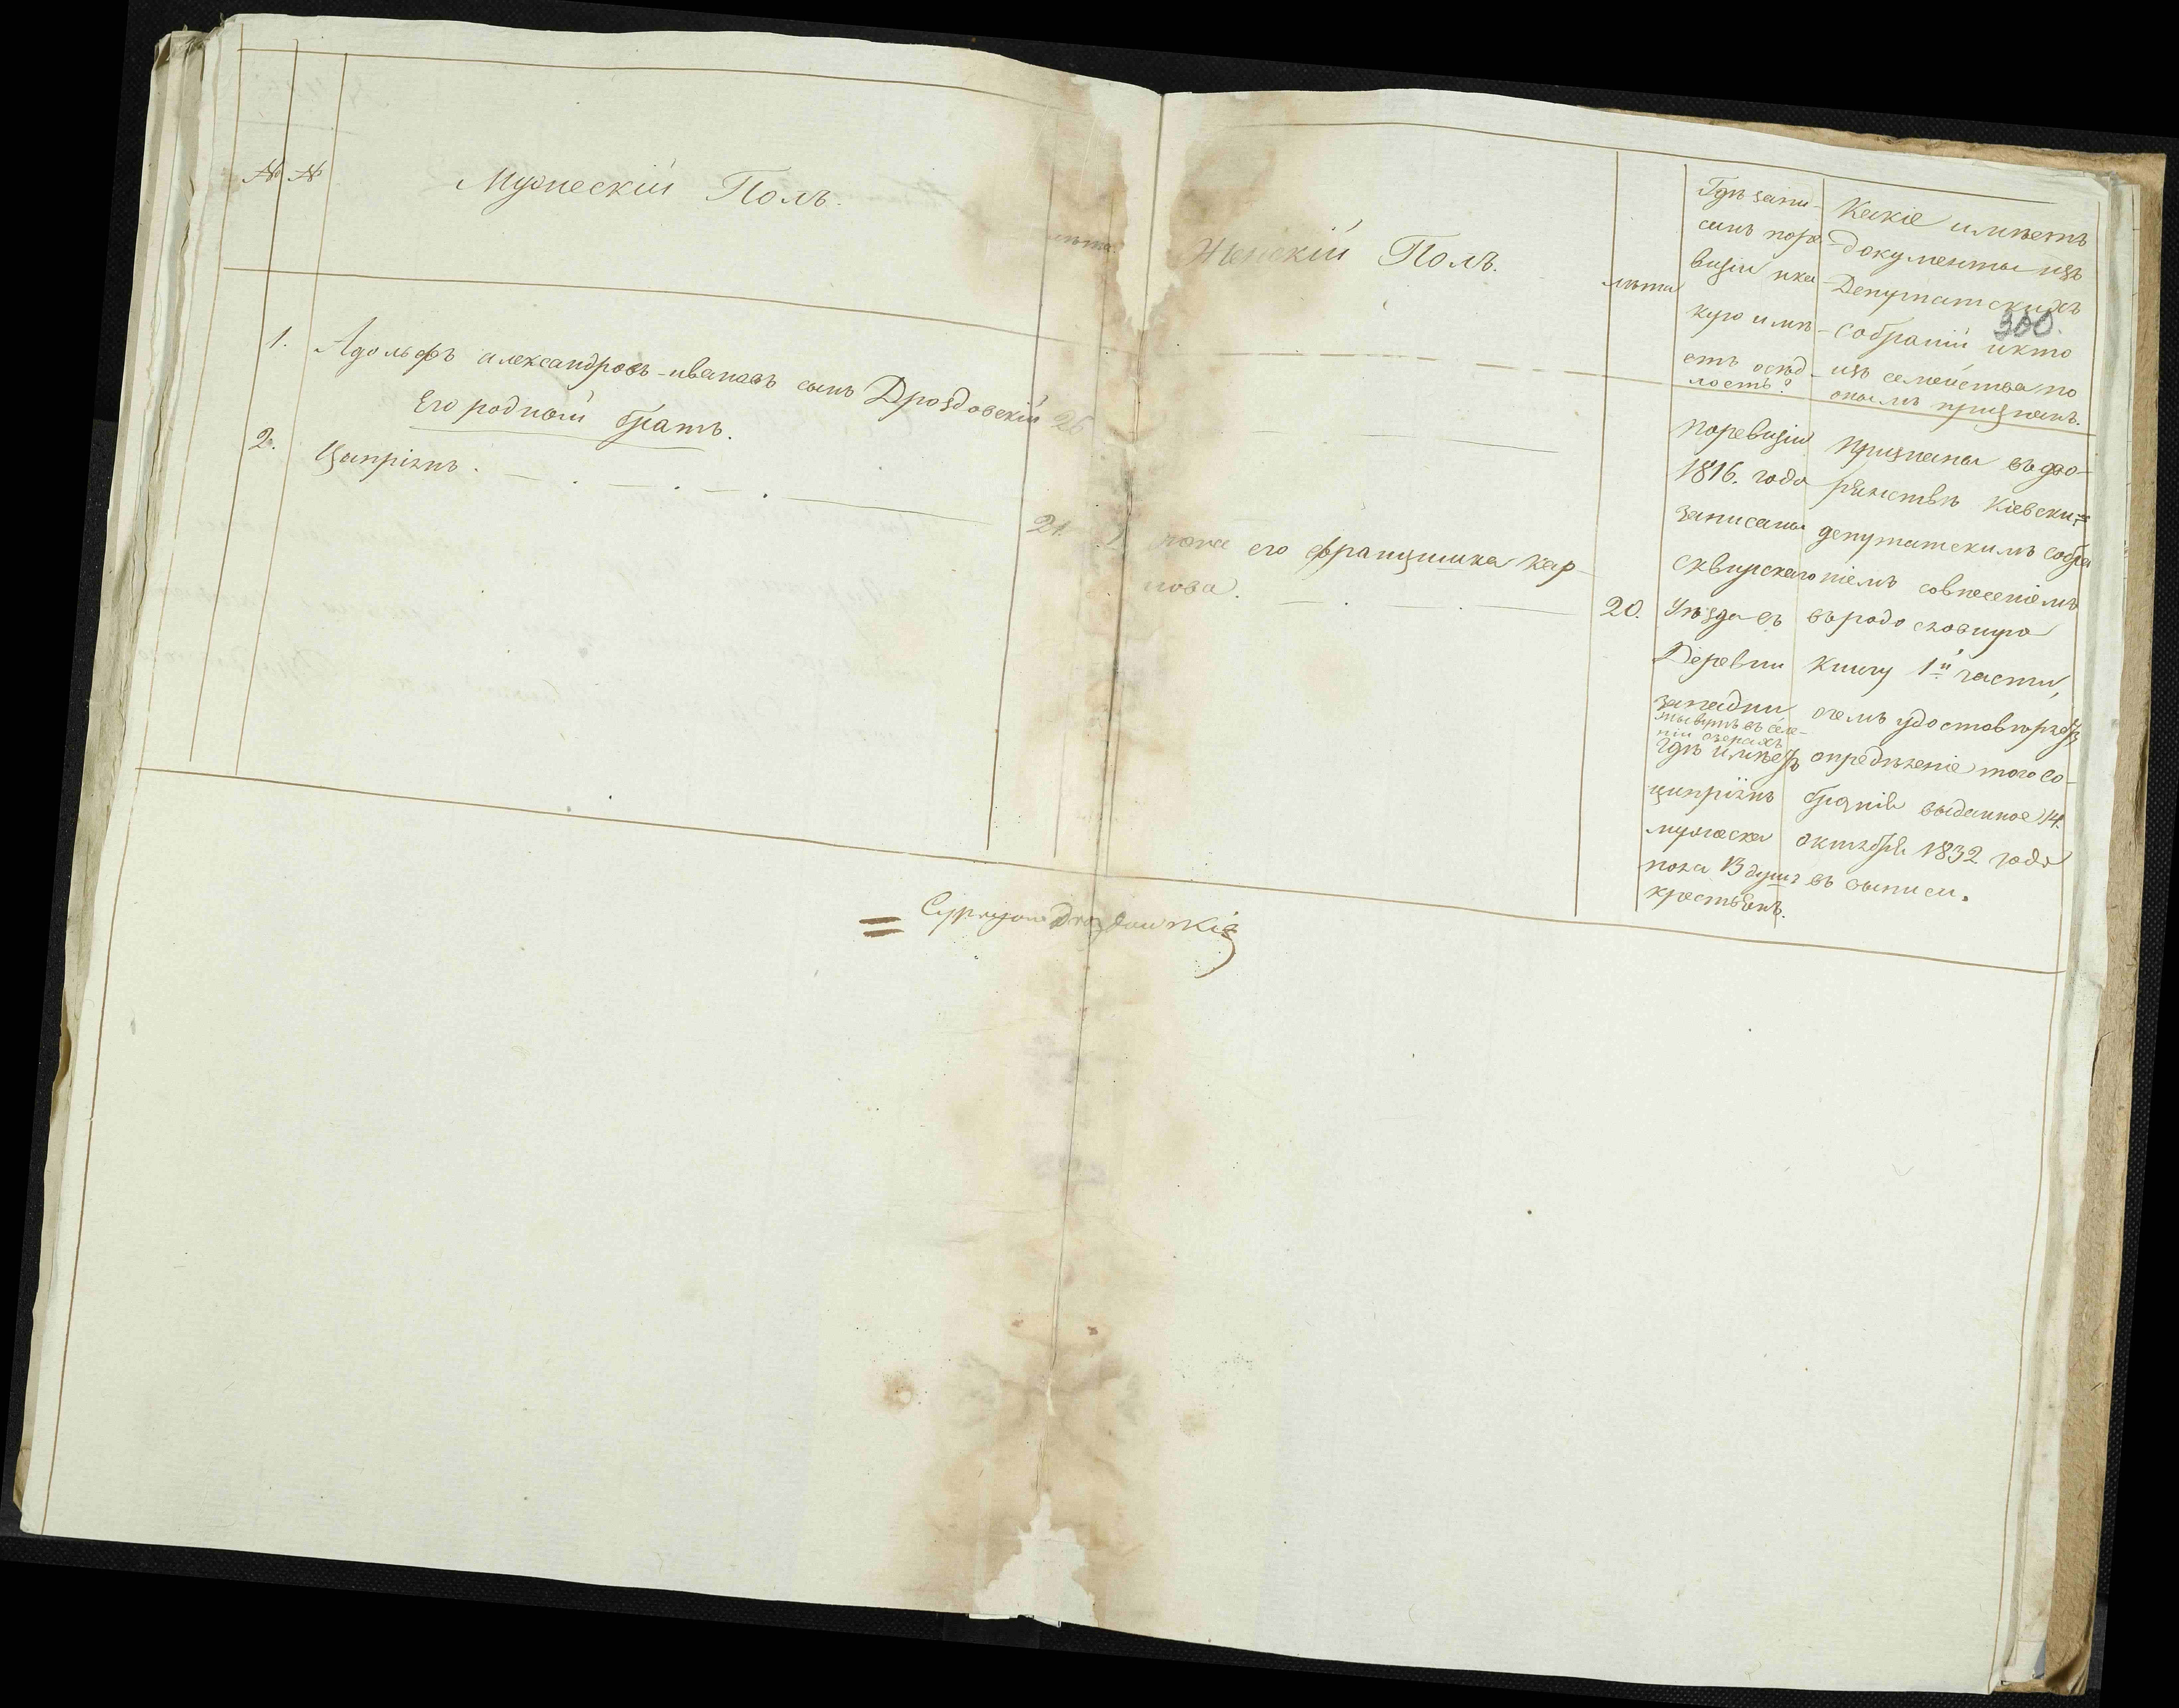 № №
Мужескій Полъ.
лѣта.
Женскій Полъ.
лѣта
Гдѣ запи-
санъ поре-
визіи ика-
кую имѣ-
етъ осѣд-
лость?
Какіе имѣетъ
документы изъ
Депутатскихъ
собраній икто
изъ семейства по
онымъ признанъ.
300.
1. Адольфъ александровъ-ивановъ сынъ Дроздовскій 26
Его родный братъ.
2. Ципріянъ. 21.
жена его францишка Кар-
пова. 20.
поревизіи
1816. года
записаны
сквирскаго
Уѣзда въ
Деревни
западни
гдѣ имѣетъ
ципріянъ
мужеска
пола 13 душъ
крестьянъ.
Признаны въ дво-
рянствѣ Кіевски-
депутатскимъ собра
ніемъ совнесеніемъ
въ родословную
Книгу 1й части,
очемъ удостовѣряетъ
опредѣленіе того со-
бранія выданное 14.
октября 1832 года
въ выписи.
Cypryan Drozdowski